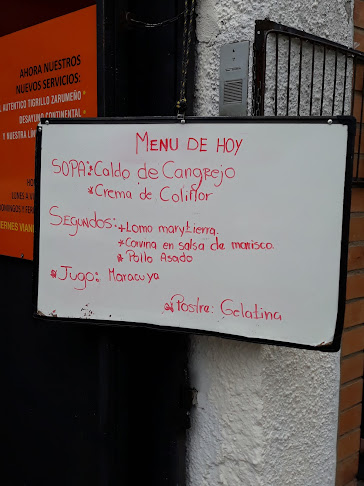 AHORA NUESTROS
NUEVOS SERVICIOS:
AUTENTICO TIGRILLO ZARUMEÑO
DESAYUNO CONTINENTAL
Y NUESTRA
MENU DE HOY
SOPA: *Caldo de Cangrejo
*Crema de Coliflor
SEGUNDOS: *Lomo mar y tierra.
*Corvina en salsa de marisco.
*Pollo Asado
*Jugo: Maracuya
*Postre: Gelatina